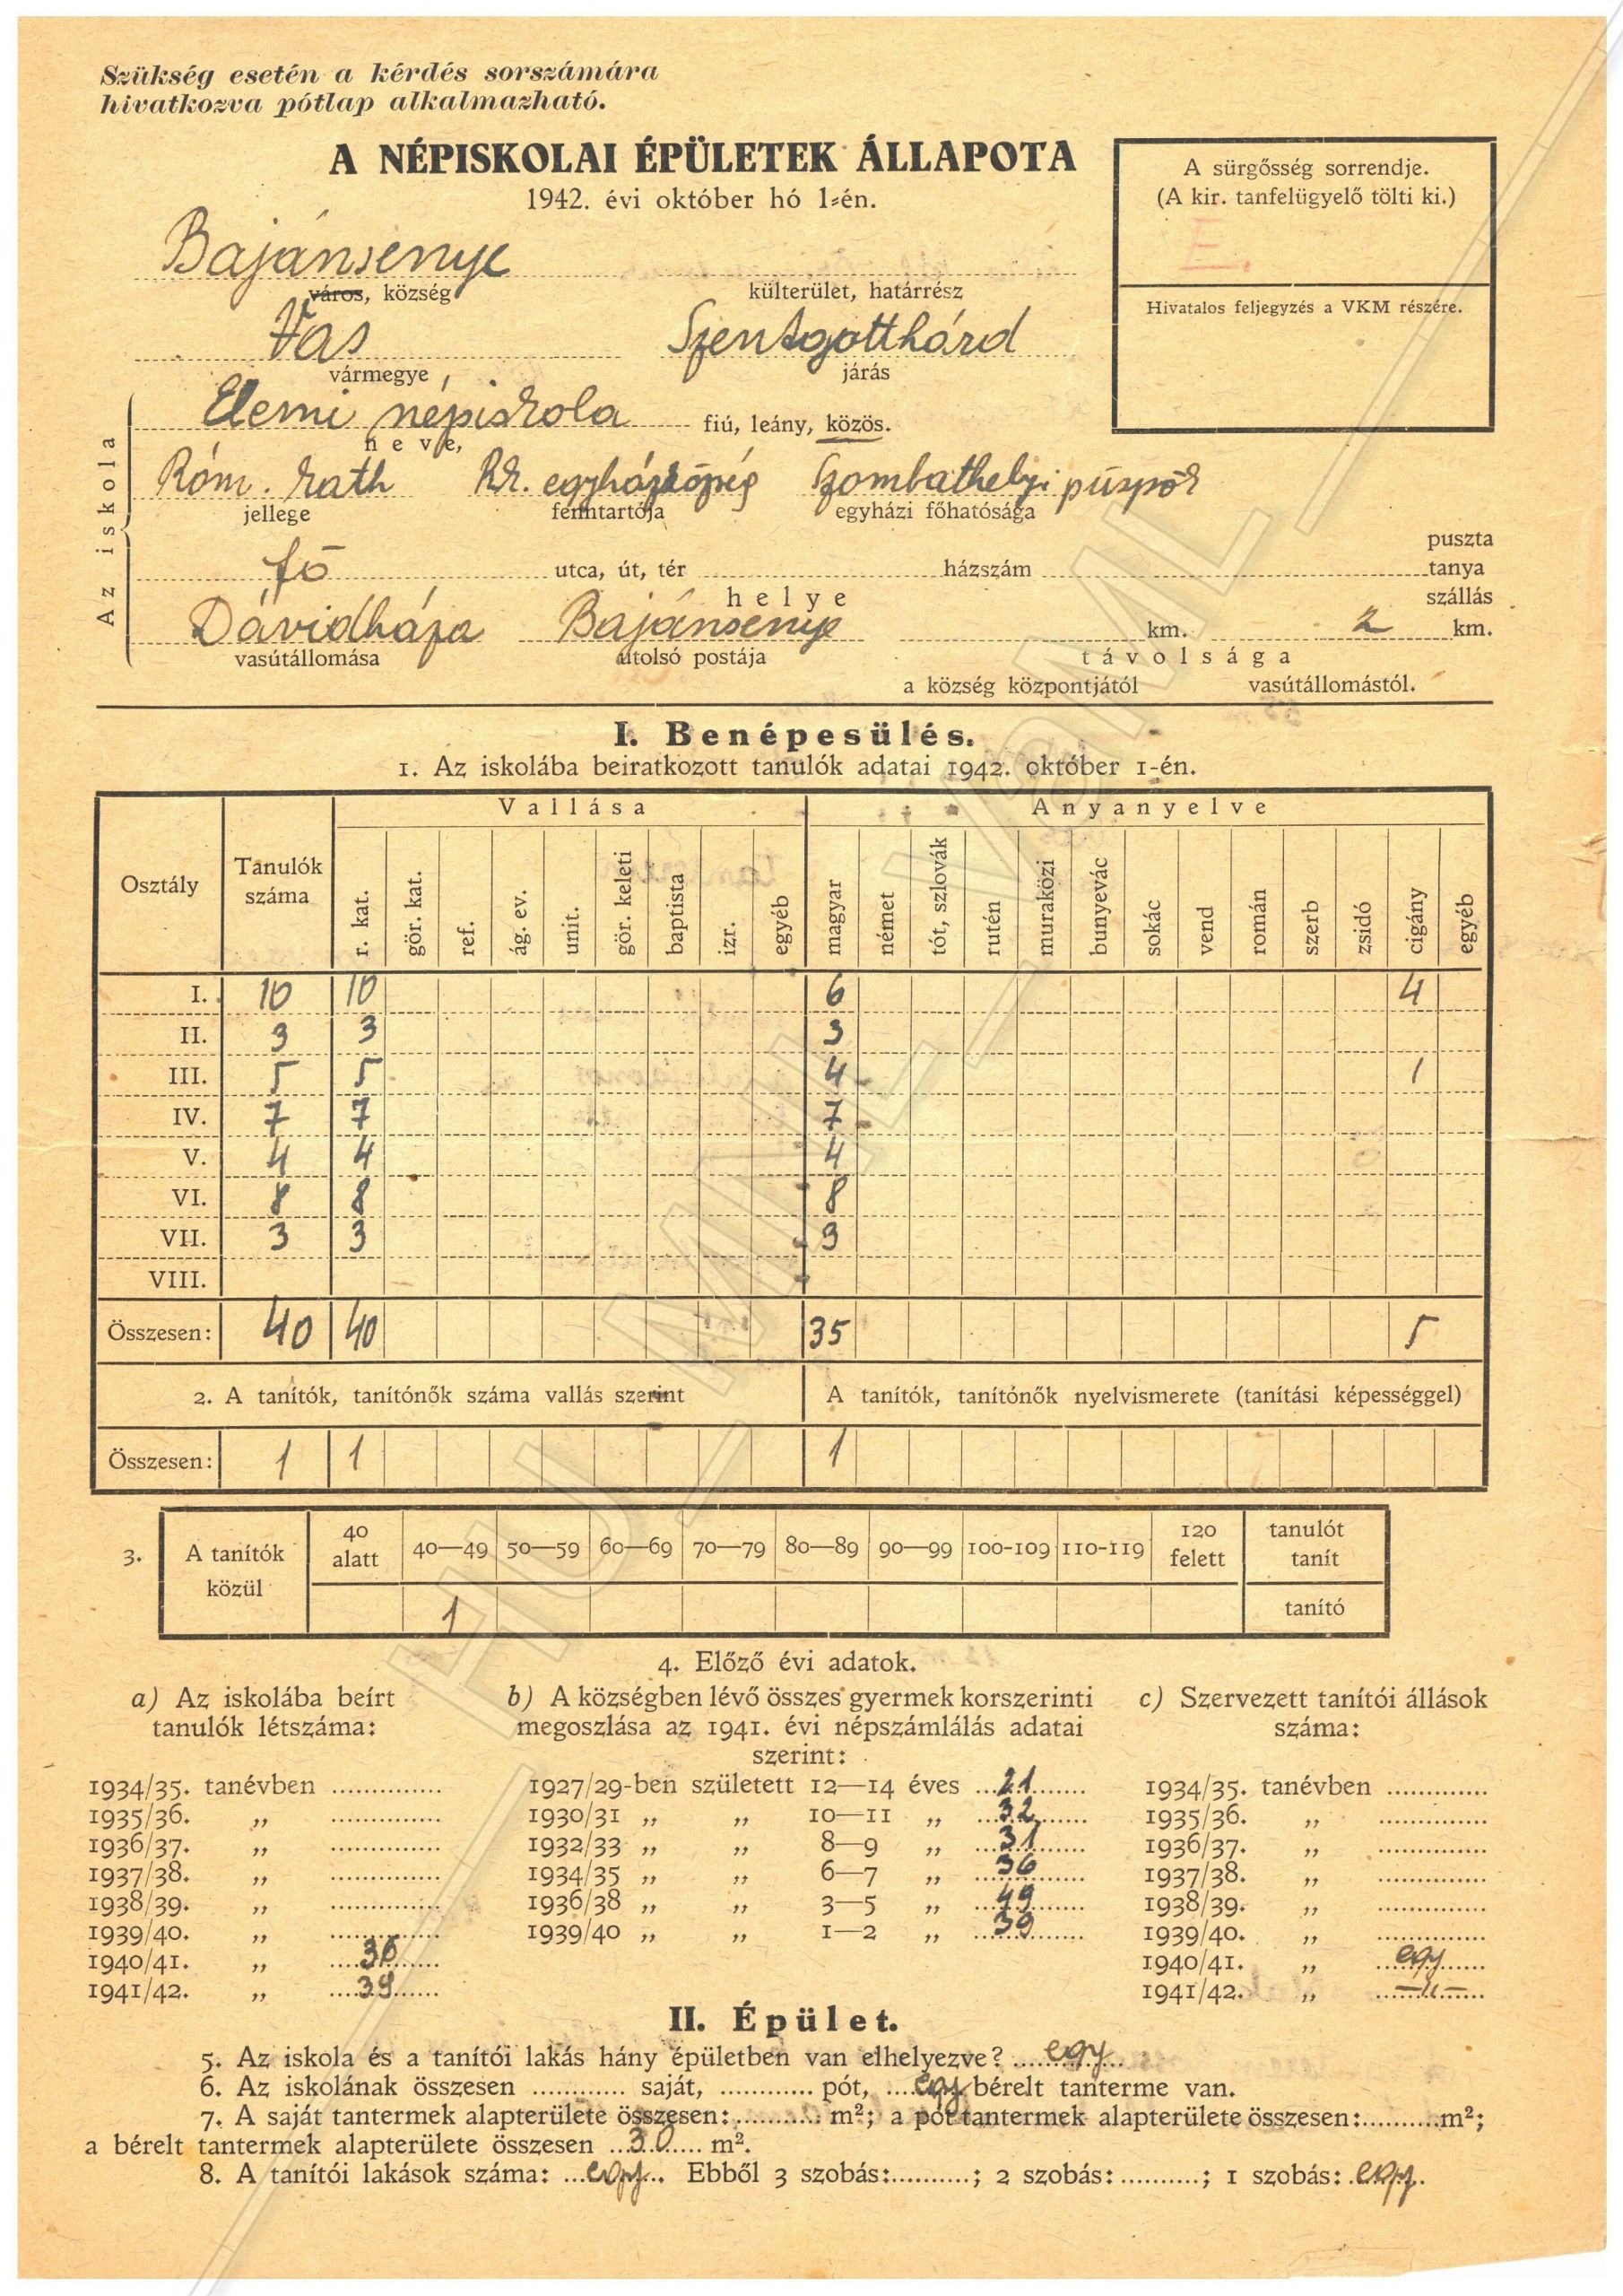 Szükség esetén a kérdés sorszámára
hivatkozva pótlap alkalmazható.
A NÉPISKOLAI ÉPÜLETEK ÁLLAPOTA
1942. évi október hó 1-én.
A sürgősség sorrendje.
(A kir. tanfelügyelő tölti ki.)
E.
Hivatalos feljegyzés a VKM részére.
Bajánsenye
város, község külterület, határrész
Vas Szentgotthárd
vármegye járás
Az iskola
Elemi népiskola fiú, leány, közös.
neve,
Róm. kath Rk. egyházközség Szombathelyi püspök
jellege fenntartója egyházi főhatósága
puszta
fő utca, út, tér házszám tanya
helye szállás
Dávidháza Bajánsenye km. 2 km.
vasútállomása utolsó postája távolsága
a község központjától vasútállomástól.
I. Benépesülés.
1. Az iskolába beiratkozott tanulók adatai 1942. október 1-én.
Vallása Anyanyelve
Osztály Tanulók száma r. kat. gör. kat. ref. ág. ev. unit. gör. keleti baptista izr. egyéb magyar német tót, szlovák rutén muraközi bunyevác sokác vend román szerb zsidó cigány egyéb
I. 10 10 6 4
II. 3 3 3
III. 5 5 4 1
IV. 7 7 7
V. 4 4 4
VI. 8 8 8
VII. 3 3 3
VIII.
Összesen: 40 40 35 5
2. A tanítók, tanítónők száma vallás szerint A tanítók, tanítónők nyelvismerete (tanítási képességgel)
Összesen: 1 1 1
3. A tanítók közül 40 alatt 40—49 50—59 60—69 70—79 80—89 90—99 100-109 110-119 120 felett tanulót tanít
1 tanító
4. Előző évi adatok.
a) Az iskolába beírt b) A községben lévő összes gyermek korszerinti c) Szervezett tanítói állások
tanulók létszáma: megoszlása az 1941. évi népszámlálás adatai száma:
szerint:
1934/35. tanévben .............. 1927/29-ben született 12—14 éves 21 1934/35. tanévben .............
1935/36. „ .............. 1930/31 „ „ 10—11 „ 32 1935/36. „ .............
1936/37. „ .............. 1932/33 „ „ 8—9 „ 31 1936/37. „ .............
1937/38. „ .............. 1934/35 „ „ 6—7 „ 36 1937/38. „ .............
1938/39. „ .............. 1936/38 „ „ 3—5 „ 49 1938/39. „ .............
1939/40. „ .............. 1939/40 „ „ 1—2 „ 39 1939/40. „ .............
1940/41. „ 36 1940/41. „ egy
1941/42. „ 39 1941/42. „ –„–
II. Épület.
5. Az iskola és a tanítói lakás hány épületben van elhelyezve? egy
6. Az iskolának összesen ............ saját, ............ pót, egy bérelt tanterme van.
7. A saját tantermek alapterülete összesen: ........... m²; a pót tantermek alapterülete összesen: .......... m²;
a bérelt tantermek alapterülete összesen 30 m².
8. A tanítói lakások száma: egy. Ebből 3 szobás: ..........; 2 szobás: ..........; 1 szobás: egy.
HU_MNL_VaML_